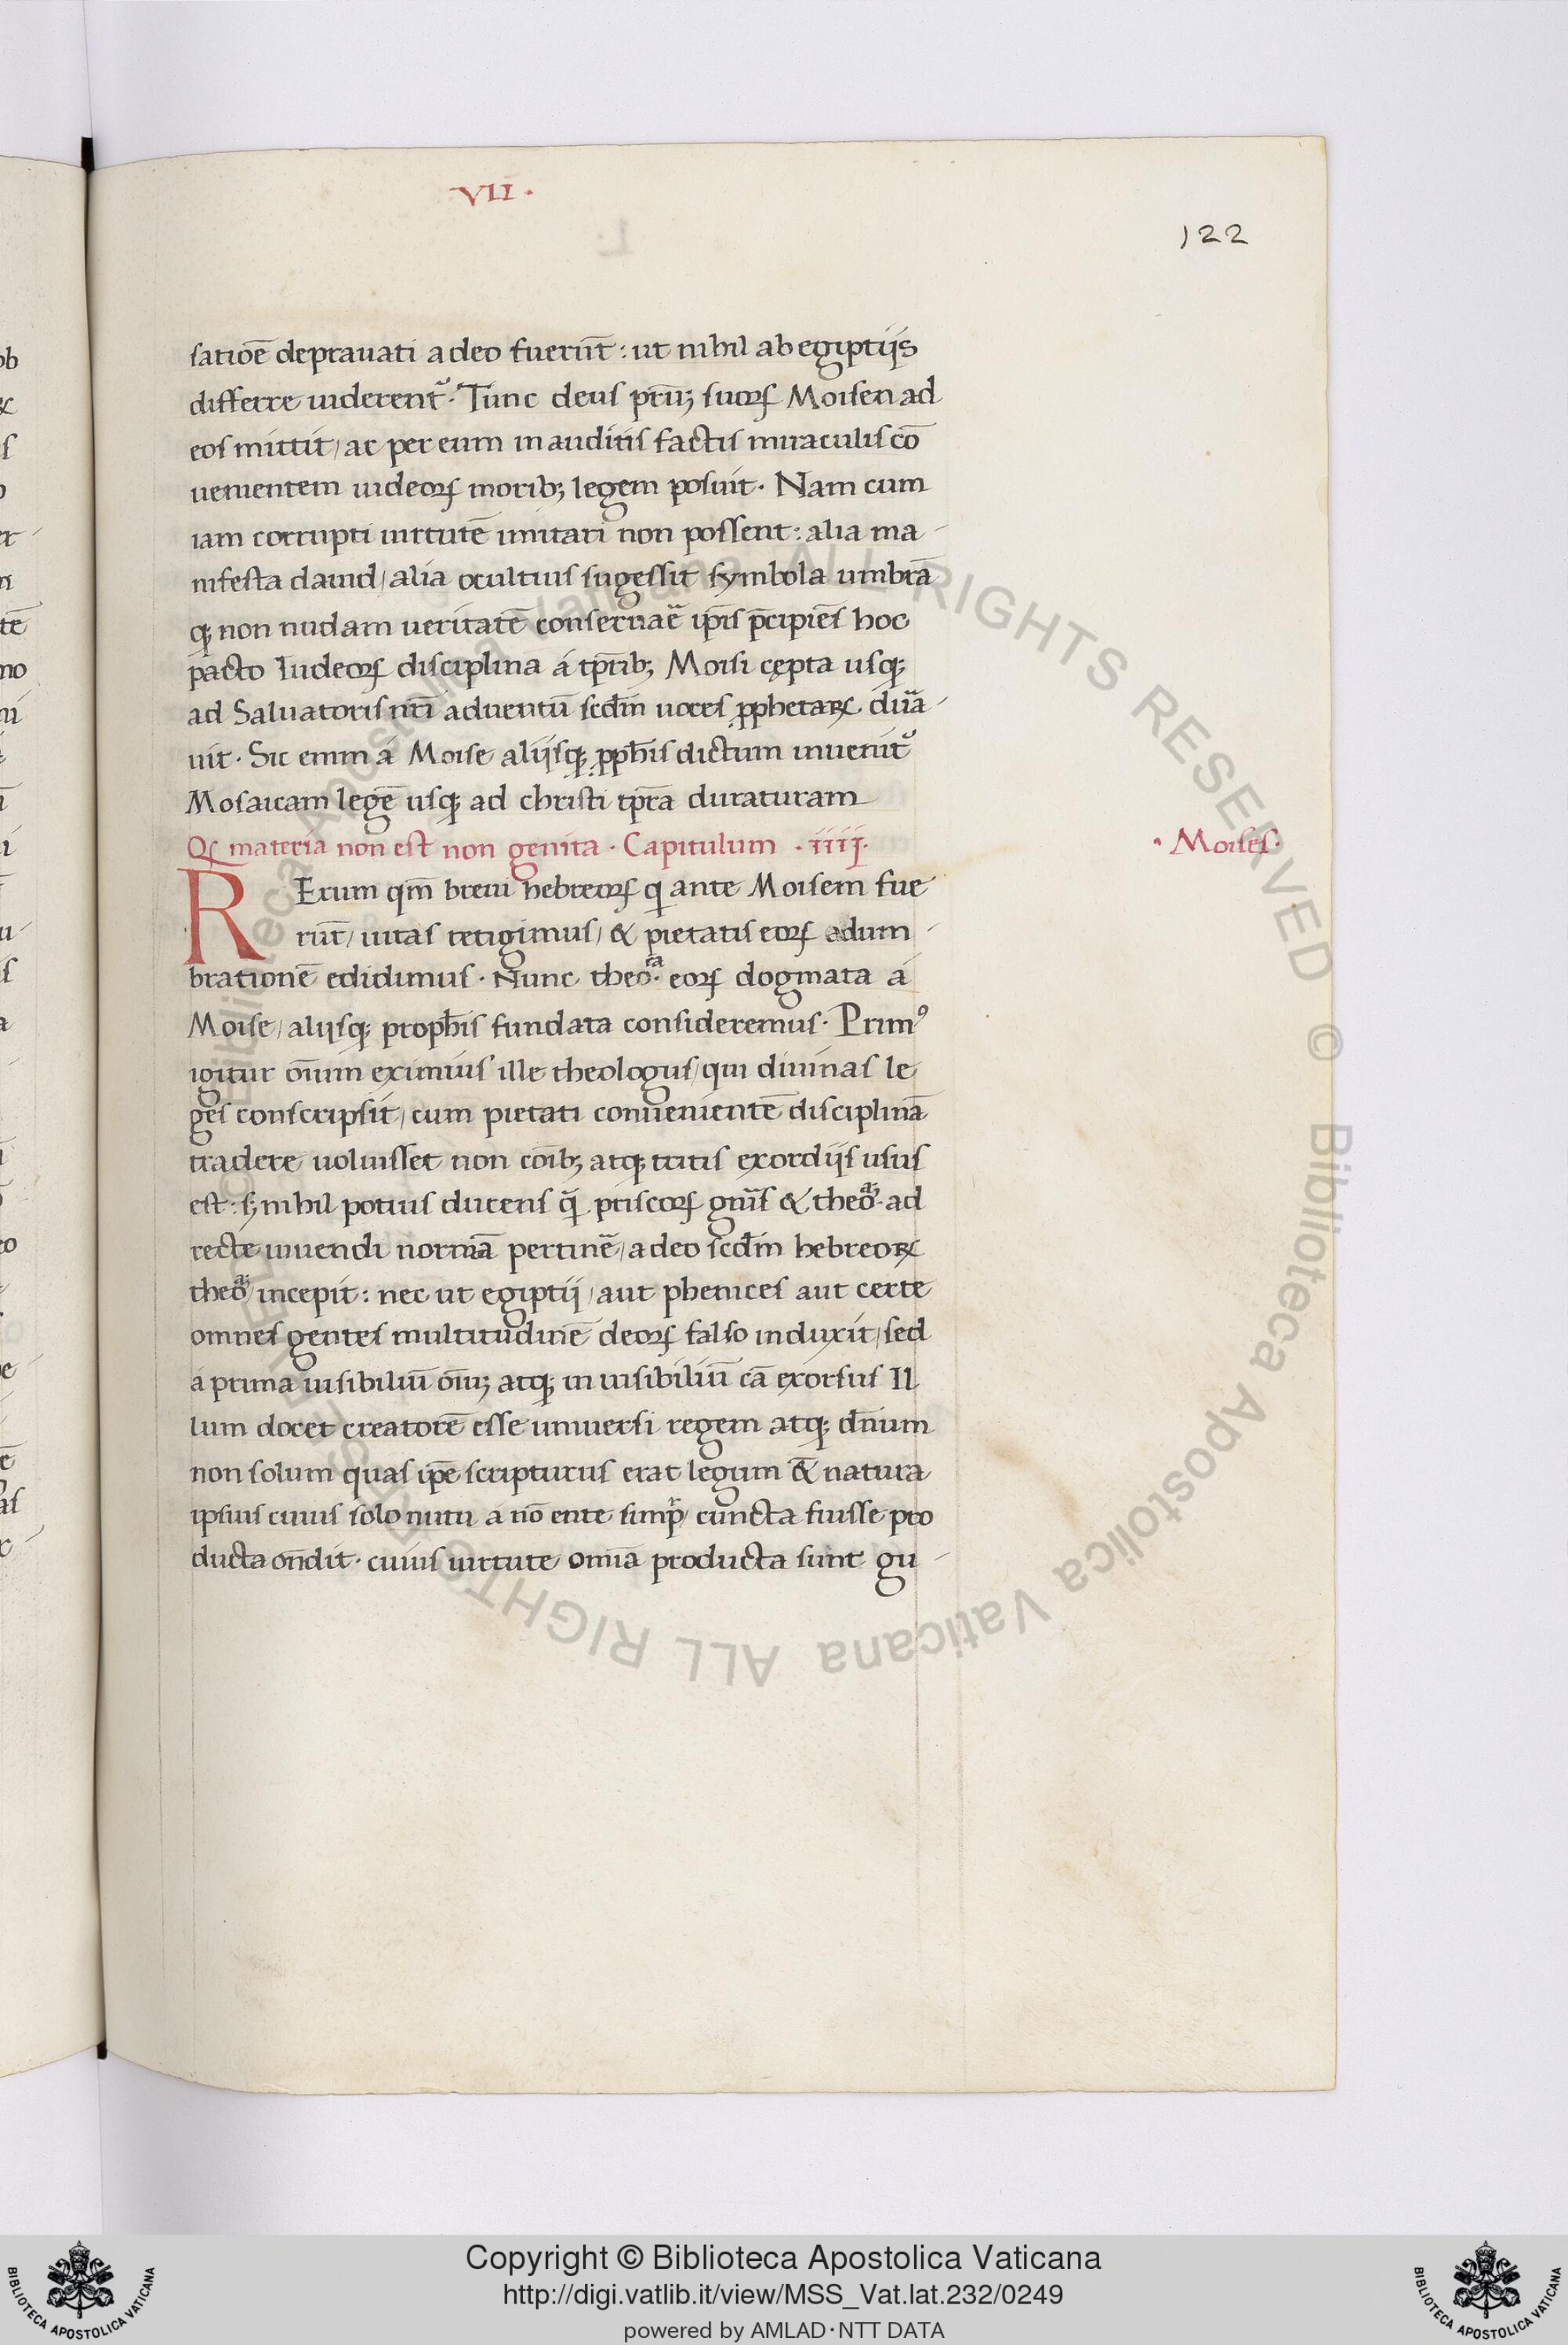 VII ·
122
satioē deprauati adeo fuerūt : ut nihil ab egiptijs
differre uiderent᷑ · Tunc deus pr̄uꝫ suoꝝ Moisen ad
eos mittit / ac per eum inauditis factis miraculis cō
uenientem iudeoꝝ moribꝫ legem posuit · Nam cum
iam corrupti uirtutē imitari non possent : alia ma -
nifesta dauid / alia ocultius sugessit symbola umbrā
qꝫ non nudam ueritatē conseruaē ip̄is p̄cipiēs hoc
pacto Iudeoꝝ disciplina á tp̄ribꝫ Moisi cępta usqꝫ
ad Saluatoris nr̄i aduentū scd̄m uoces ꝓphetaꝝ dūa -
uit · Sic enim á Moise alijsqꝫ ꝓph̄is dictum inuenit᷑
Mosaicam legē usqꝫ ad christi tp̄ra duraturam
Qꝭ materia non est non genita · Capitulum · iiij ·
· Moises ·
RErum qm̄ breui hebreoꝝ qi ante Moisem fue
rūt / uitas tetigimus / & pietatis eoꝝ adum -
brationē edidimus · Nunc theo.ᵃ eoꝝ dogmata á
Moise / alijsqꝫ proph̄is fundata consideremus · Primꝰ
igitur oīum eximius ille theologus / qui diuinas le
ges conscripsit / cum pietati conuenientē disciplinā
tradere uoluisset non coībꝫ atqꝫ tritis exordijs usus
est : sꝫ nihil potius ducens q̄ priscoꝝ gnūs & theo. ad
recte uiuendi normā pertinē / adeo scd̄m hebreoꝝ
theo / incepit : nec ut egiptij / aut phenices aut certe
omnes gentes multitudinē deoꝝ falso induxit / sed
á prima uisibiliū oīuꝫ atqꝫ inuisibiliū cā exorsus Il
lum docet creatorē esse uniuersi regem atqꝫ dn̄ium
non solum quas ip̄e scripturus erat legum & natura
ipsius cuius solo nutu a nō ente simpr / cuncta fuisse pro
ducta on̄dit · cuius uirtute omīa producta sunt gu -
Copyright © Biblioteca Apostolica Vaticana
http://digi.vatlib.it/view/MSS_Vat.lat.232/0249
powered by AMLAD·NTT DATA